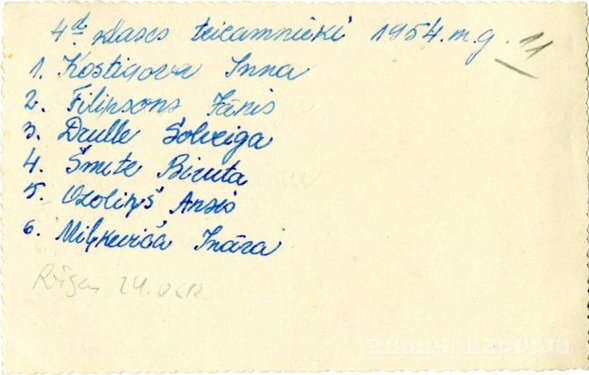 4d klases teicamnieki 1954.m.g. 11
1. Kostigova Inna
2. Filipsons Jānis
3. Drulle Solveiga
4. Šmite Biruta
5. Ozoliņš Ansis
6. Miļkeviča Ināra
24.
zudusilatvija